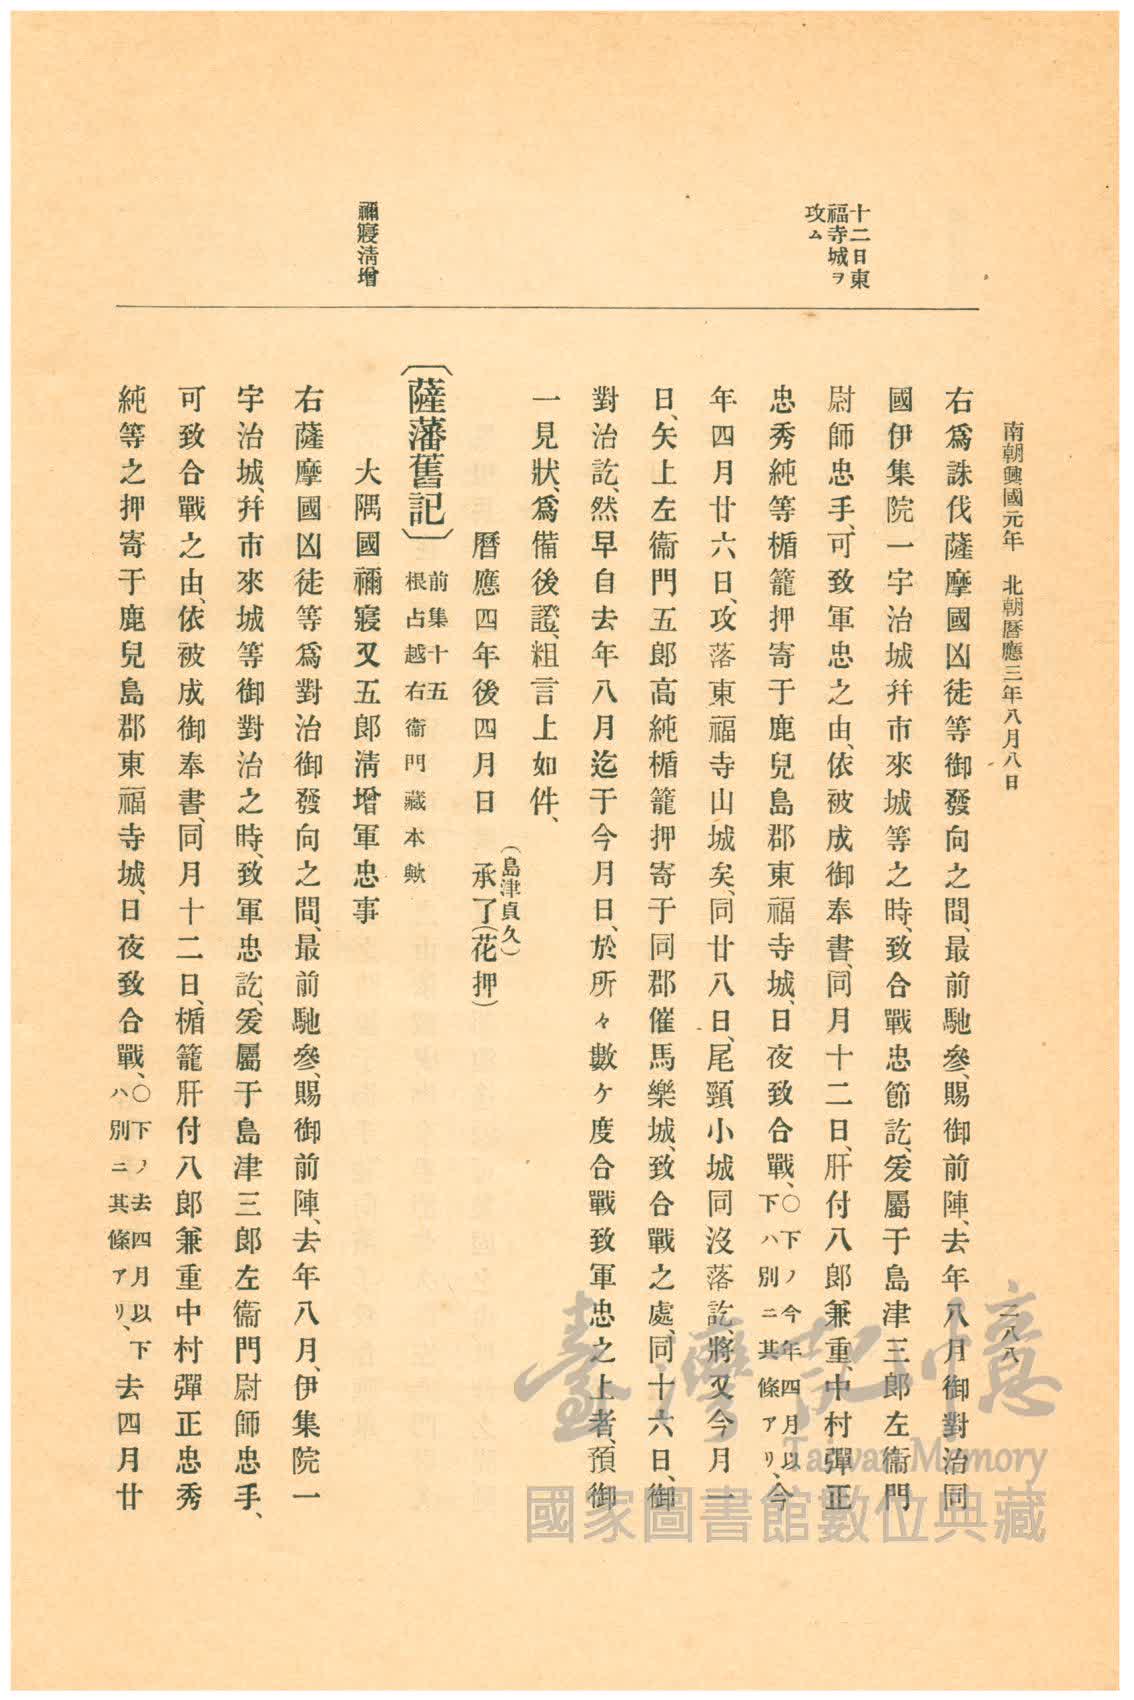 南朝興國元年　北朝曆應三年八月八日
二八八
十二日東
福寺城ヲ
攻ム
右爲誅伐薩摩國凶徒等御發向之間、最前馳參、賜御前陣、去年八月御對治同
國伊集院一宇治城幷市來城等之時、致合戰忠節訖、爰屬于島津三郎左衞門
尉師忠手、可致軍忠之由、依被成御奉書、同月十二日、肝付八郎兼重、中村彈正
忠秀純等楯籠押寄于鹿兒島郡東福寺城、日夜致合戰、
〇下ノ今年四月以
下ハ別ニ其條アリ、
今
年四月廿六日、攻落東福寺山城矣、同廿八日、尾頸小城同沒落訖、將又今月一
日、矢上左衞門五郎高純楯籠押寄于同郡催馬樂城、致合戰之處、同十六日、御
對治訖、然早自去年八月迄于今月日、於所々數ケ度合戰致軍忠之上者、預御
一見狀、爲備後證、粗言上如件、
曆應四年後四月日
（島津貞久）
承了（花押）
〔薩藩舊記〕
前集十五
根占越右衞門藏本歟
禰寢淸增
大隅國禰寢又五郎淸增軍忠事
右薩摩國凶徒等爲對治御發向之間、最前馳參、賜御前陣、去年八月、伊集院一
宇治城、幷市來城等御對治之時、致軍忠訖、爰屬于島津三郎左衞門尉師忠手、
可致合戰之由、依被成御奉書、同月十二日、楯籠肝付八郎兼重中村彈正忠秀
純等之押寄于鹿兒島郡東福寺城、日夜致合戰、
〇下ノ去四月以下
ハ別ニ其條アリ、
去四月廿
臺灣記憶
Taiwan Memory
國家圖書館數位典藏